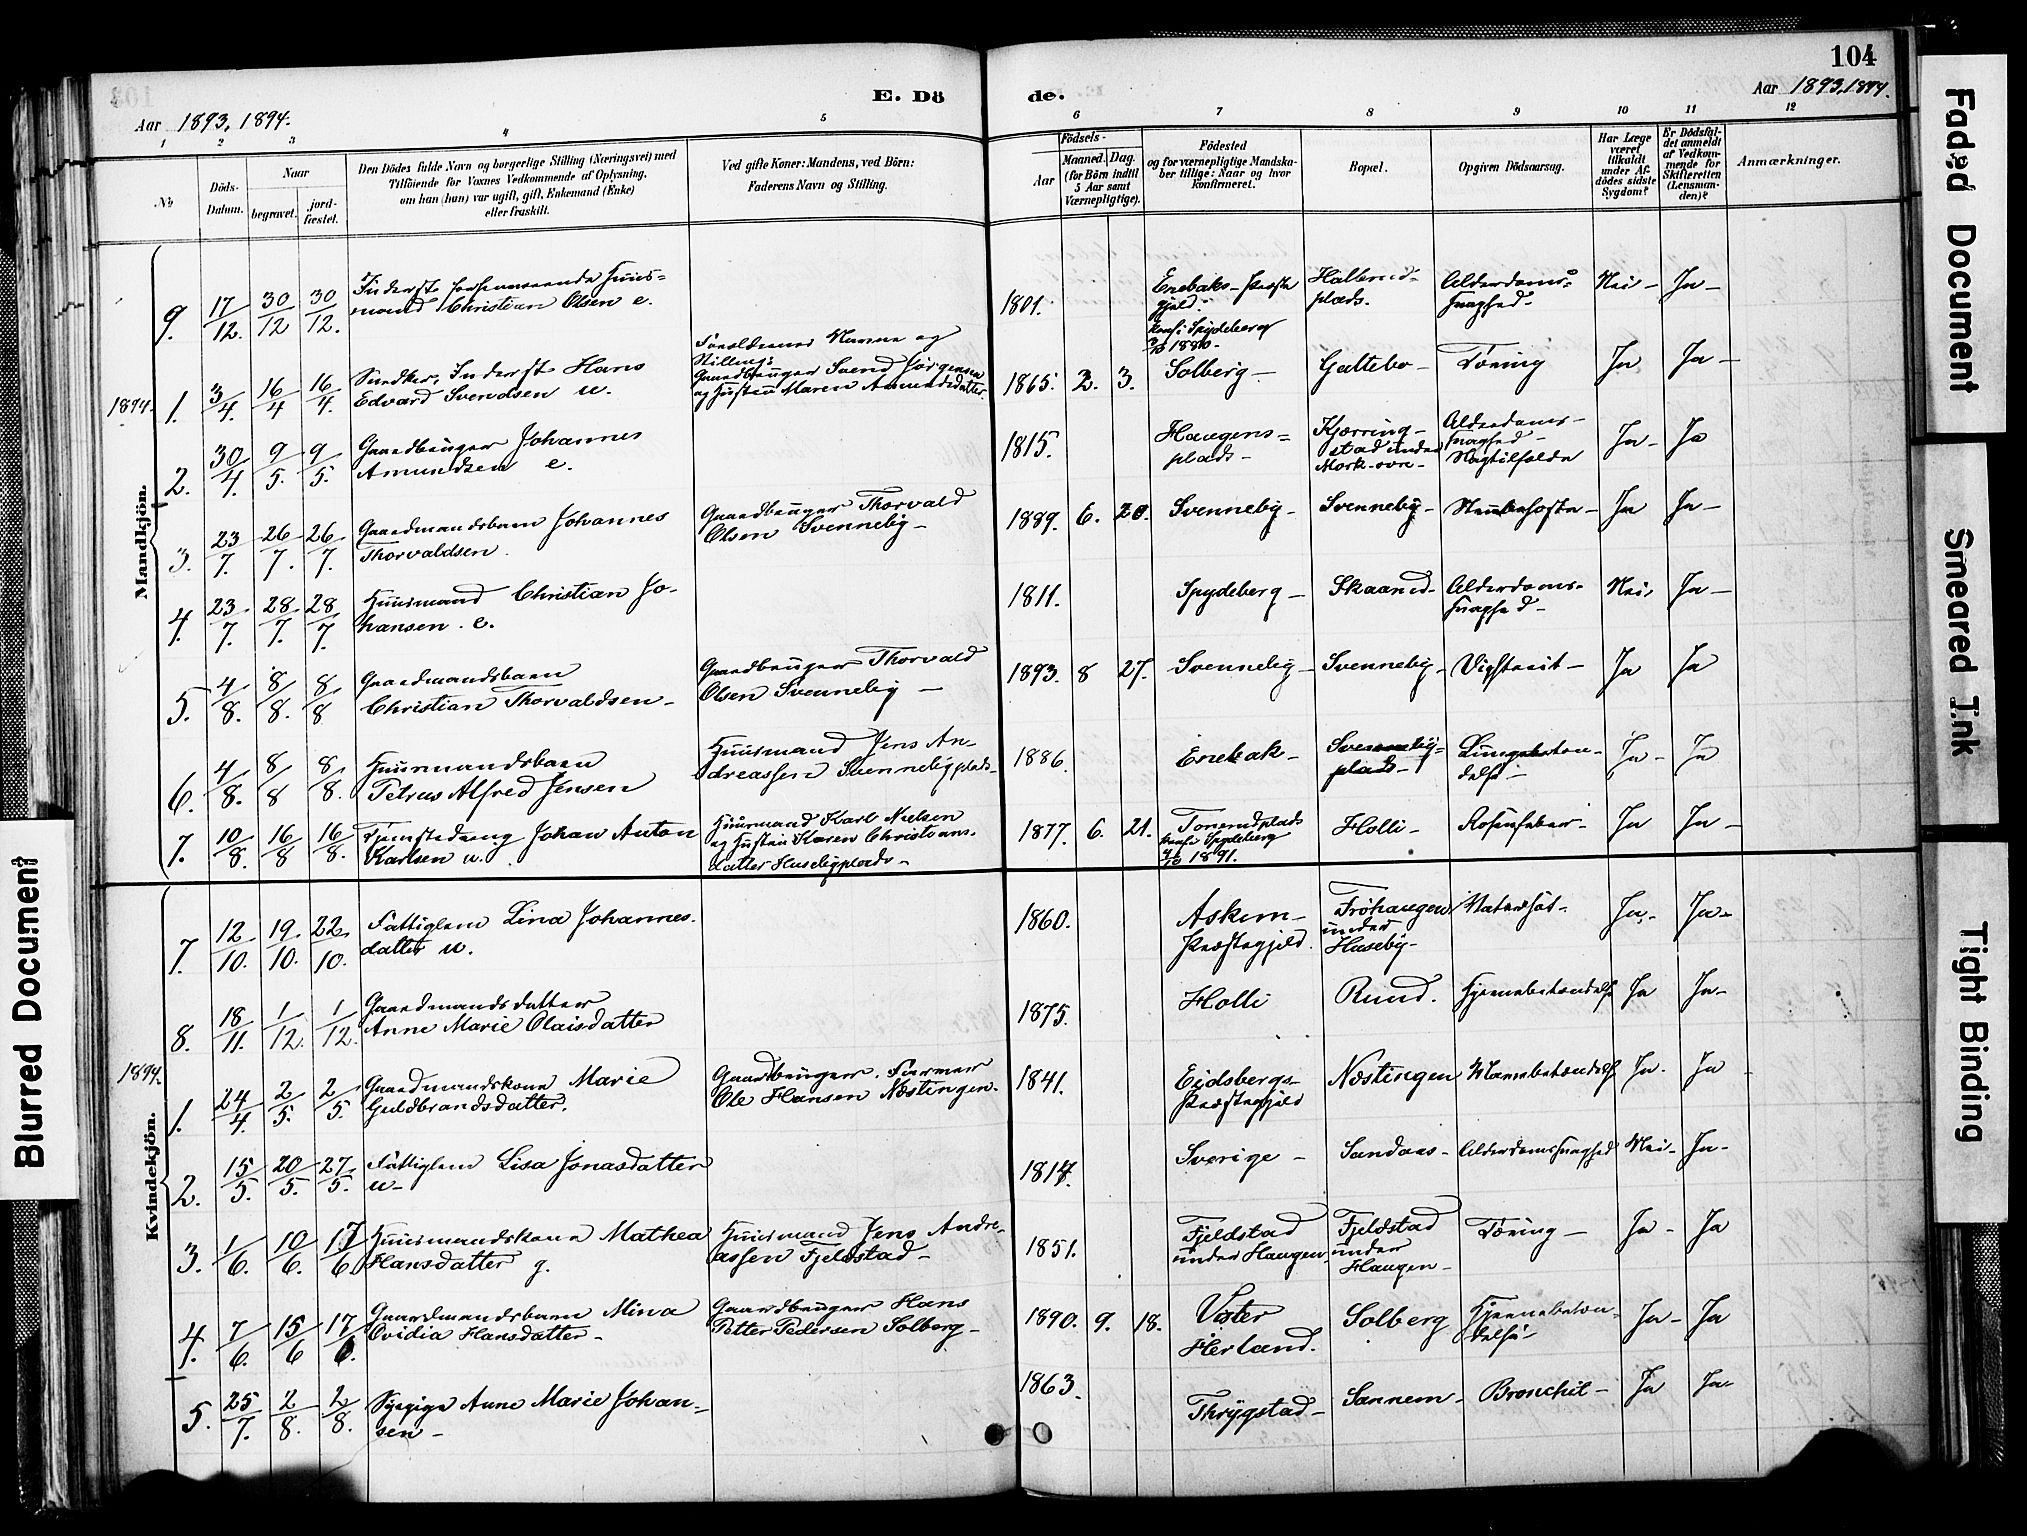 104
E. Dö de.
Aar 1893, 1894.
Aar 1893, 1894.
1 2 3 4 5 6 7 8 9 10 11 12
No
Döds-Datum.
Naar
begravet.
jord-fæstet.
Den Dödes fulde Navn og borgerlige Stilling (Næringsvei) med
Tilföiende for Voxnes Vedkommende af Oplysning,
om han (hun) var ugift, gift, Enkemand (Enke)
eller fraskilt.
Ved gifte Koner: Mandens, ved Börn:
Faderens Navn og Stilling.
Födsels-
Aar
Maaned. Dag.
(for Börn indtil
5 Aar samt
Værnepligtige).
Födested
og for værnepligtige Mandska-
ber tillige: Naar og hvor
konfirmeret.
Bopæl.
Opgiven Dödsaarsag.
Har Læge
været
tilkaldt
under Af-
dödes sidste
Sygdom?
Er Dödsfal-
det anmeldt
af Vedkom-
mende for
Skifteretten
(Lensman-
den)?
Anmærkninger.
Mandkjön.
9. 17/12. 30/12 30/12. Inderst forhenværende Huus-
mand Christian Olsen e. 1801. Enebaks-Præste
gjeld. plads. Alderdoms-
svaghed. Nei - Ja -
1894. 1. 3/4. 16/4 16/4. Snedker, Inderst Hans
Edvard Svendsen u. Forældrenes Navne og
Stilling:
Gaardbruger Svend Jörgensen
og Hustru Maren Amundsdatter. 1865. 2. 3. konf. i Spydeberg
1880.
Solberg - Galtebo - Tæring Ja Ja -
2. 30/4. 9/5. 9/5. Gaardbruger Johannes
Amundsen e. 1815. Haugens-
plads - Kjærring-
stad under
Mork-øvre - Alderdoms-
svaghed -
Ja - Ja
3. 23/7. 26/7. 26/7. Gaardmandsbarn Johannes
Thorvaldsen. Gaardbruger Thorvald
Olsen Svenneby - 1889. 6. 20. Svenneby - Svenneby - Strubehoste - Ja Ja -
4. 23/7. 28/7. 28/7. Huusmand Christian Jo-
hansen. e. 1811. Spydeberg - Skaarud - Alderdoms-
svaghed - Nei, Ja -
5. 4/8. 8/8. 8/8 Gaardmandsbarn
Christian Thorvaldsen - Gaardbruger Thorvald
Olsen Svenneby - 1893. 8 27. Svenneby - Svenneby - Ja Ja
6. 4/8. 8/8 8/8. Huusmandsbarn
Petrus Alfred Jensen Huusmand Jens An-
dreassen Svennebyplads - 1886. Enebak - Svenneby-
plads - Lungebetæn-
delse - Ja - Ja
7. 10/8. 16/8 16/8. Tjenestedreng Johan Anton
Karlsen u. Huusmand Karl Nielsen
og Hustru Karen Christians-
datter Husebyplads - 1877. 6. 21. konf. i Spydeberg
4/10 1891. Holli - Rosenfeber - Ja Ja -
Kvindekjön.
7. 12/10. 19/10. 22/10. Fattiglem Lina Johannes-
datter u. 1860. Askim -
Præstegjeld. Fröhaugen
under
Huseby - Vatersot - Ja - Ja -
8. 18/11. 1/12. 1/12. Gaardmandsdatter
Anne Marie Olaisdatter 1875. Holli Rund. Hjernebetændelse Ja Ja -
1894. 1. 24/4. 2/5. 2/5. Gaardmandskone Marie
Guldbrandsdatter. Gaardbruger,
Ole Hansen Næstingen - 1841. Eidsbergs-
Præstegjeld Næstingen Mavebetændelse Ja - Ja
2. 15/5. 20/5. 27/5. Fattiglem Lisa Jonasdatter
u - 1814. Sverige - Sandaas - Alderdomssvaghed Nei - Ja -
3. 1/6. 10/6. 17/6. Huusmandskone Mathea
Hansdatter g. Huusmand Jens Andre-
assen Fjeldstad - 1851. Fjeldstad
under Haugen, Fjeldstad
under
Haugen - Tæring - Ja - Ja
4. 7/6. 15/6 17/6. Gaardmandsbarn Mina
Ovidia Hansdatter - Gaardbruger Hans
Petter Pedersen Solberg - 1890. 9. 18. Vester
Herland. Solberg Hjernebetæn-
delse Ja - Ja
5. 25/7. 2/8. 2/8. Sypige Anne Marie Johan-
sen - 1863. Thrygstad - Sannem - Bronchit - Ja Ja -
Faded Document
Smeared Ink
Tight Binding
Blurred Document